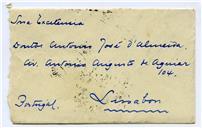 Sua Excelencia
Doutor Antonio José d'Almeida
Av. Antonio Augusto de Aguiar
104.
Portugal. Lissabon